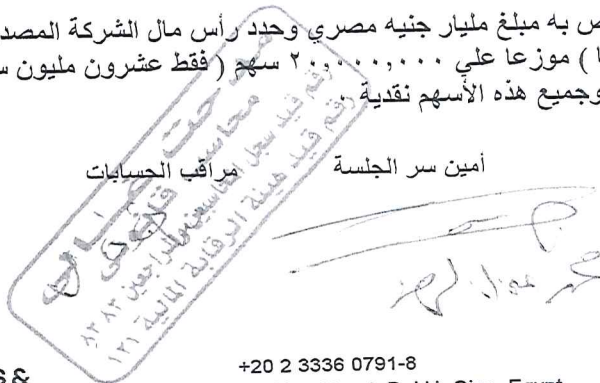 ص به مبلغ مليار جنيه مصري وحدد رأس مال الشركة المصد
ا ) موزعا علي ٢٠,٠٠٠,٠٠٠ سهم ( فقط عشرون مليون س
وجميع هذه الأسهم نقدية .
أمين سر الجلسة مراقب الحسابات
محاسب قانوني
رقم قيد سجل المحاسبين والمراجعين ٨٣٨٣
رقم قيد هيئة الرقابة المالية ١٢١
+20 2 3336 0791-8
S &